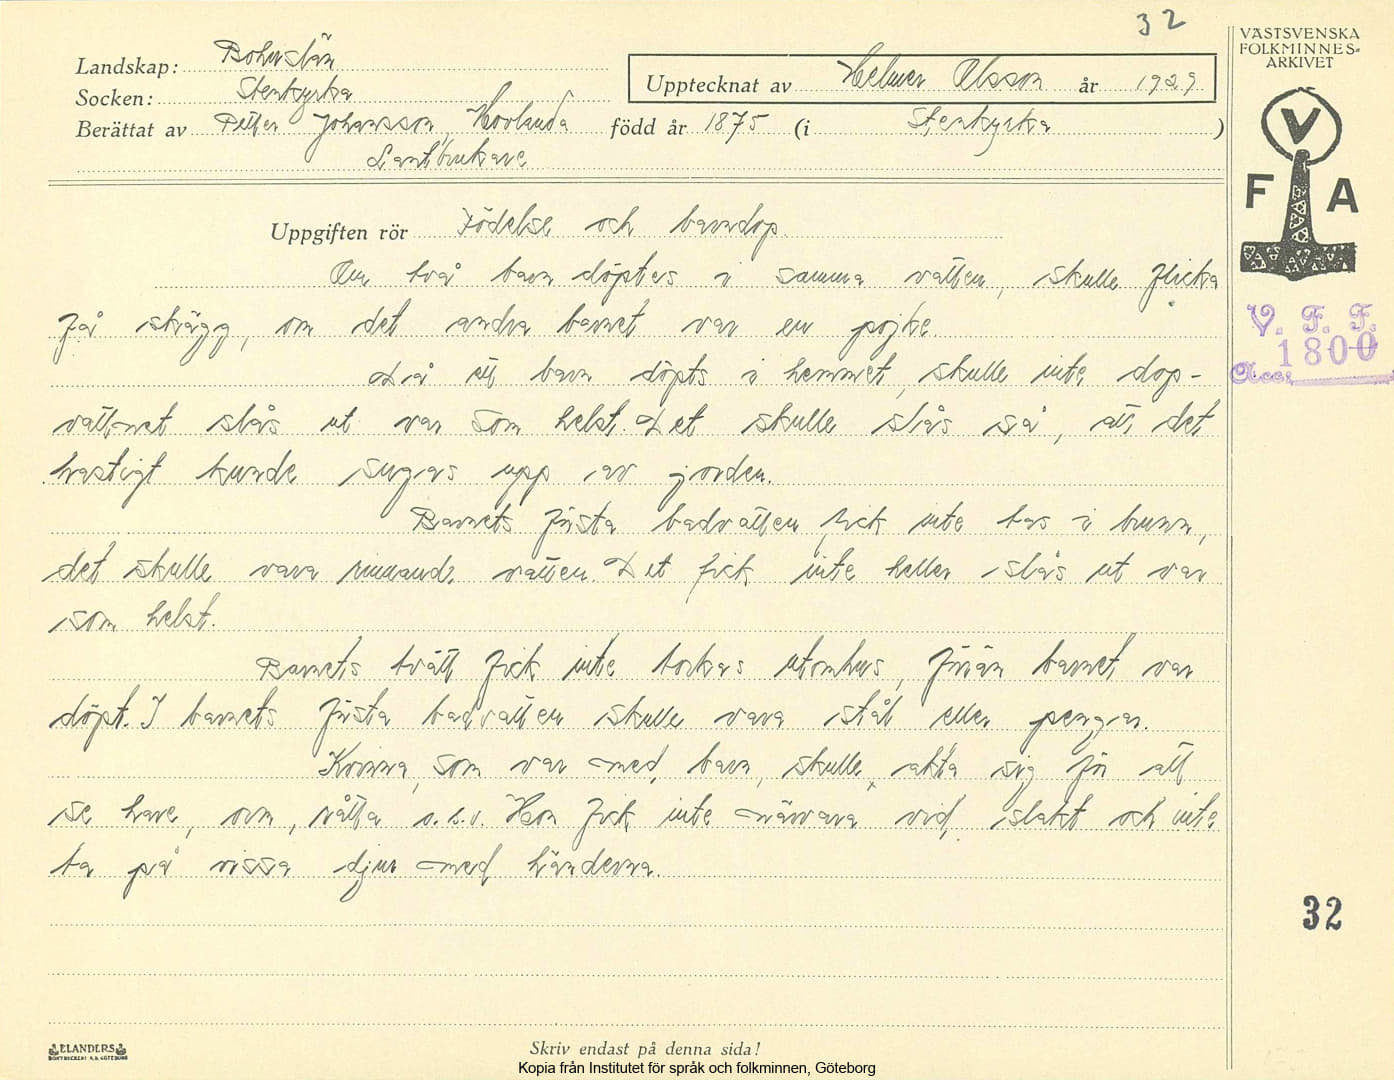 32
VÄSTSVENSKA
FOLKMINNES-
ARKIVET
Landskap: Bohuslän
Socken: Stenkyrka
Upptecknat av Helmer Olsson år 1929
Berättat av Petter Johansson, Hovlanda född år 1875 (i Stenkyrka)
Lantbrukare
V
F A
Uppgiften rör Födelse och barndop.
Om två barn döptes i samma vatten, skulle flicka
få skägg, om det andra barnet var en pojke.
V. F. F.
1800
Acc:
Då ett barn döpts i hemmet, skulle inte dop-
vattnet slås ut var som helst. Det skulle slås så, att det
hastigt kunde sugas upp av jorden.
Barnets första badvatten fick inte tas i brunn,
det skulle vara rinnande vatten. Det fick inte heller slås ut var
som helst.
Barnets tvätt fick inte torkas utomhus, förrän barnet var
döpt. I barnets första badvatten skulle vara stål eller pengar.
Kvinna, som var med barn, skulle akta sig för att
se hare, orm, råtta o.s.v. Hon fick inte närvara vid slakt och inte
ta på vissa djur med händerna.
32
ELANDERS
BOKTRYCKERI A.B. GÖTEBORG
Skriv endast på denna sida!
Kopia från Institutet för språk och folkminnen, Göteborg